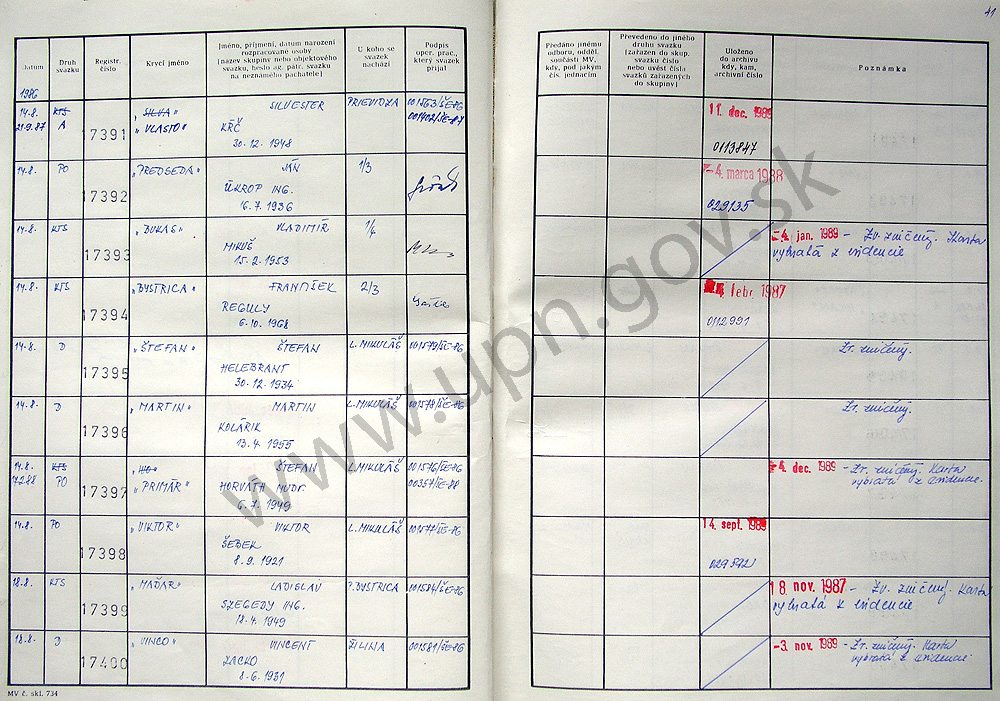 41
Datum
Druh svazku
Registr. číslo
Krycí jméno
Jméno, příjmení, datum narození rozpracované osoby
[název skupiny nebo objektového svazku, heslo ag. pátr. svazku na neznámého pachatele]
U koho se svazek nachází
Podpis oper. prac., který svazek přijal
Předáno jinému odboru, odděl. součásti MV, kdy, pod jakým čís. jednacím
Převedeno do jiného druhu svazku [zařazen do skup. svazku číslo nebo uvést čísla svazků zařazených do skupiny]
Uloženo do archívu kdy, kam, archivní číslo
Poznámka
1986
14.8. KTS 17391 "SILVA" SILVESTER PRIEVIDZA 001563/ŠE-86 11. dec. 1989
21.9.87 A "VLASTO" KŔČ 001402/ŠE-87
30.12.1948 0113847
14.8. PO 17392 "PREDSEDA" JÁN 1/3 4. marca 1988
ÚKROP ING.
16.7.1936 029135
14.8. KTS 17393 "DUKAS" VLADIMÍR 1/4 -4. jan. 1989 - Zv. zničený. Karta
MIKUŠ vybratá z evidencie
15.2.1953
14.8. KTS 17394 "BYSTRICA" FRANTIŠEK 2/3 febr. 1987
REGULY
6.10.1968 0112991
14.8. D 17395 "ŠTEFAN" ŠTEFAN L. MIKULÁŠ 001579/ŠE-86 Zv. zničený.
HELEBRANT
30.12.1934
14.8. D 17396 "MARTIN" MARTIN L. MIKULÁŠ 001578/ŠE-86 Zv. zničený.
KOLÁRIK
13.4.1955
14.8. KTS 17397 ŠTEFAN L. MIKULÁŠ 001576/ŠE-86 4. dec. 1989 - Zv. zničený. Karta
PO "PRIMÁR" HORVÁTH MUDR. 00357/ŠE-88 vybratá z evidencie.
6.7.1949
14.8. PO 17398 "VIKTOR" VIKTOR L. MIKULÁŠ 001577/ŠE-86 14. sept. 1989
ŠEBEK
8.9.1921
18.8. KTS 17399 "MAĎAR" LADISLAV P. BYSTRICA 001584/ŠE-86 18. nov. 1987 - Zv. zničený. Karta
SZEGEDY ING. vybratá z evidencie
18.4.1949
18.8. D 17400 "VINCO" VINCENT ŽILINA 001581/ŠE-86 -3. nov. 1989 - Zv. zničený. Karta
ZACKO vybratá z evidencie.
8.6.1931
MV č. skl. 734
www.upn.gov.sk